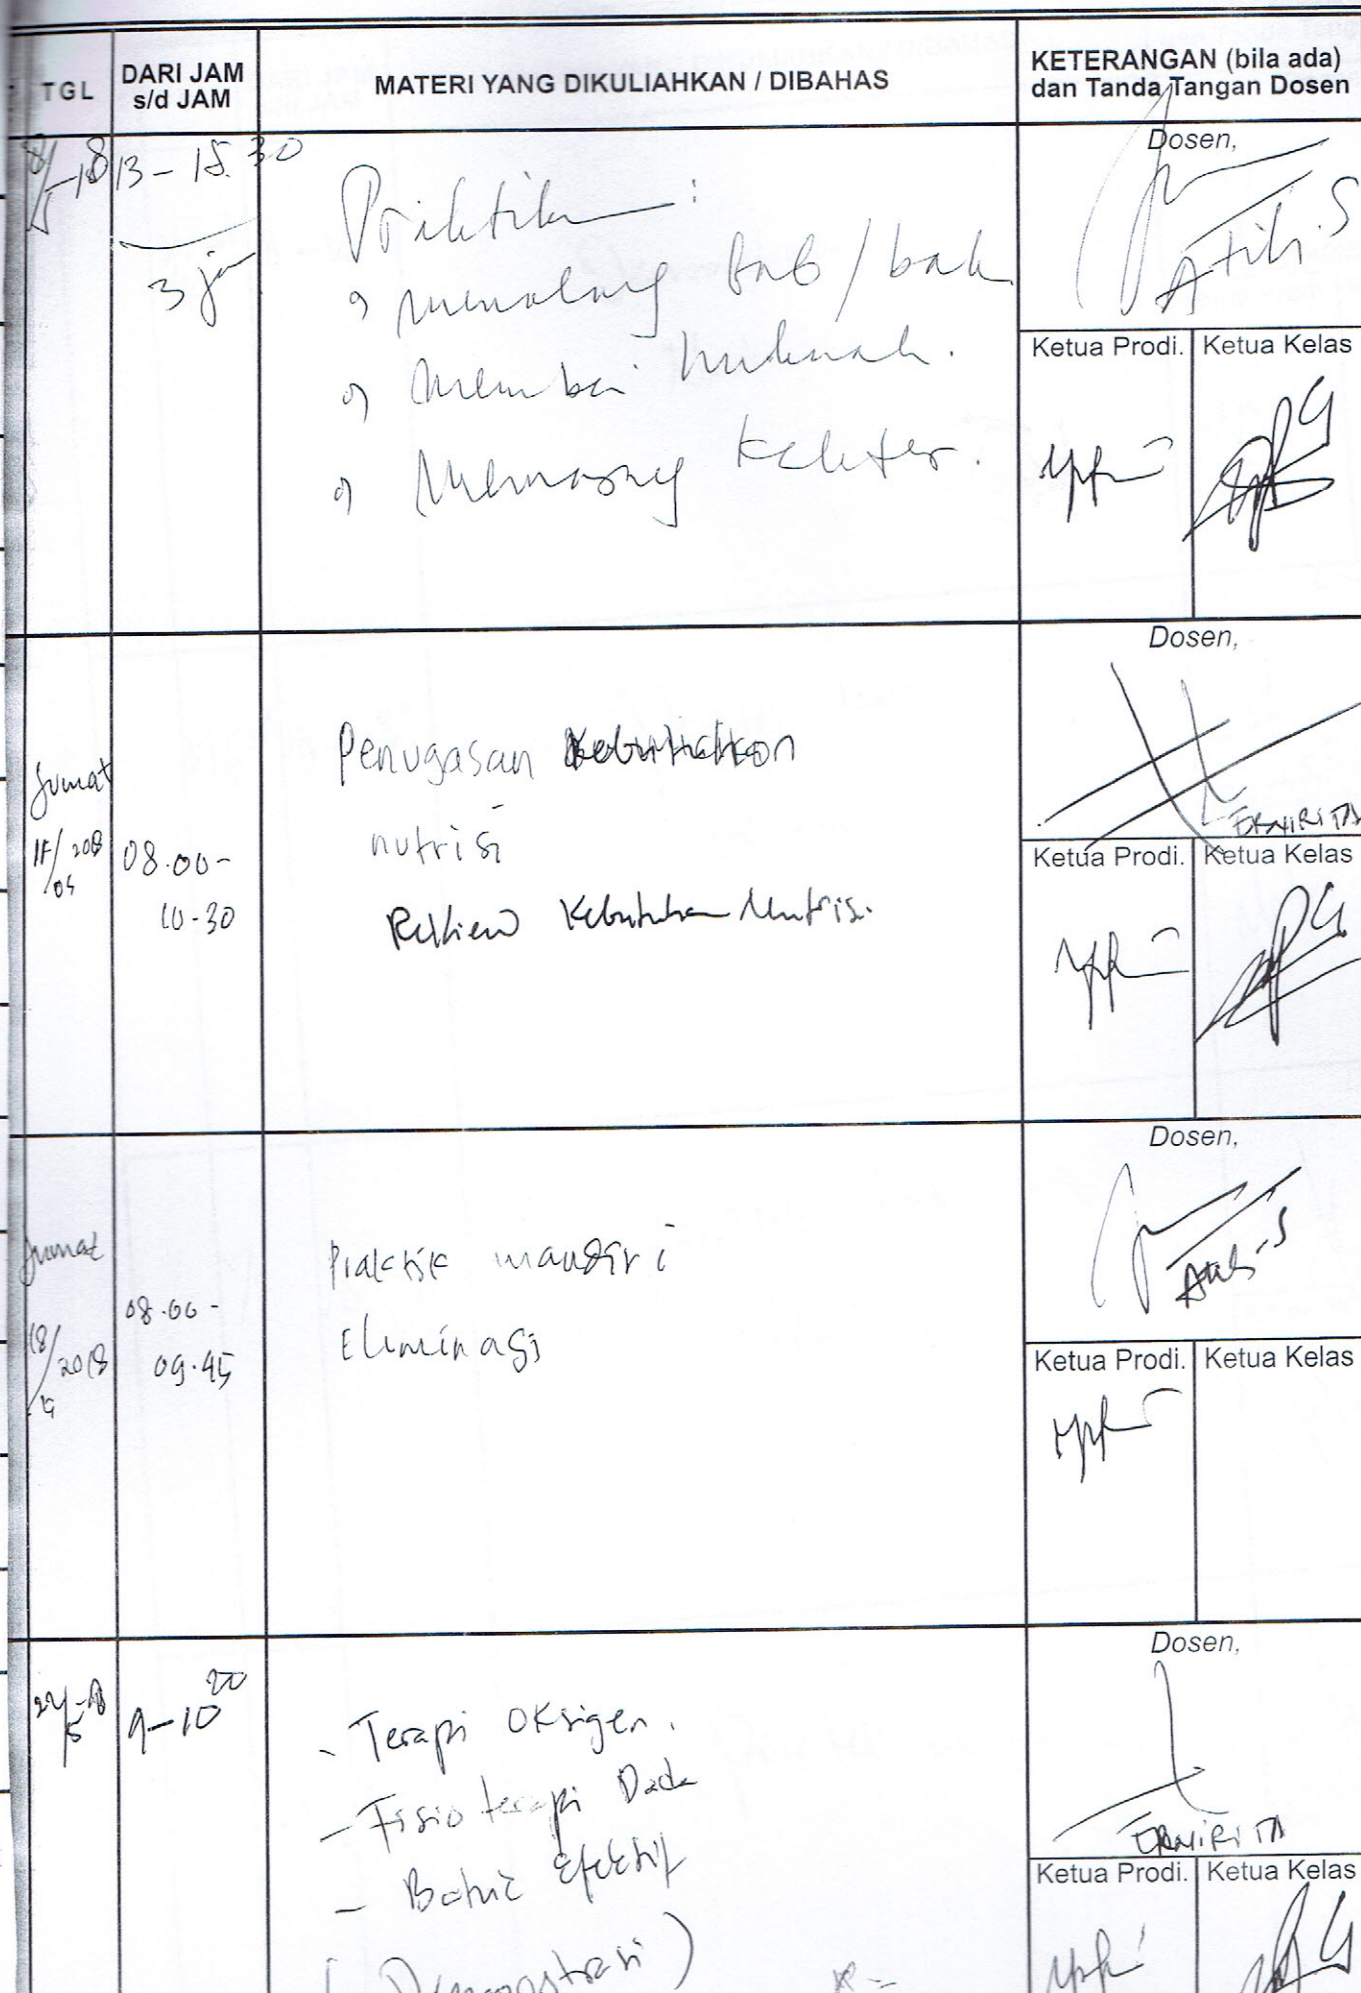 TGL
DARI JAM
s/d JAM
MATERI YANG DIKULIAHKAN / DIBAHAS
KETERANGAN (bila ada)
dan Tanda Tangan Dosen
8/5-18
13 - 15.30
3 jam
:
menolong bab / bak
Memberi
Memasang Kateter.
Dosen,
Atik.S
Ketua Prodi.
Ketua Kelas
Jumat
08.00-
10-30
Penugasan Kebutuhan
nutrisi
Kebutuhan Nutrisi.
Dosen,
ERNIRITA
Ketua Prodi.
Ketua Kelas
Jumat
18/2018
08.00-
09.45
Praktik mandiri
Eliminasi
Dosen,
Ketua Prodi.
Ketua Kelas
22/5-18
9-10 20
- Terapi Oksigen.
- Fisioterapi Dada
- Batuk Efektif
(Demonstrasi)
Dosen,
ERNIRITA
Ketua Prodi.
Ketua Kelas